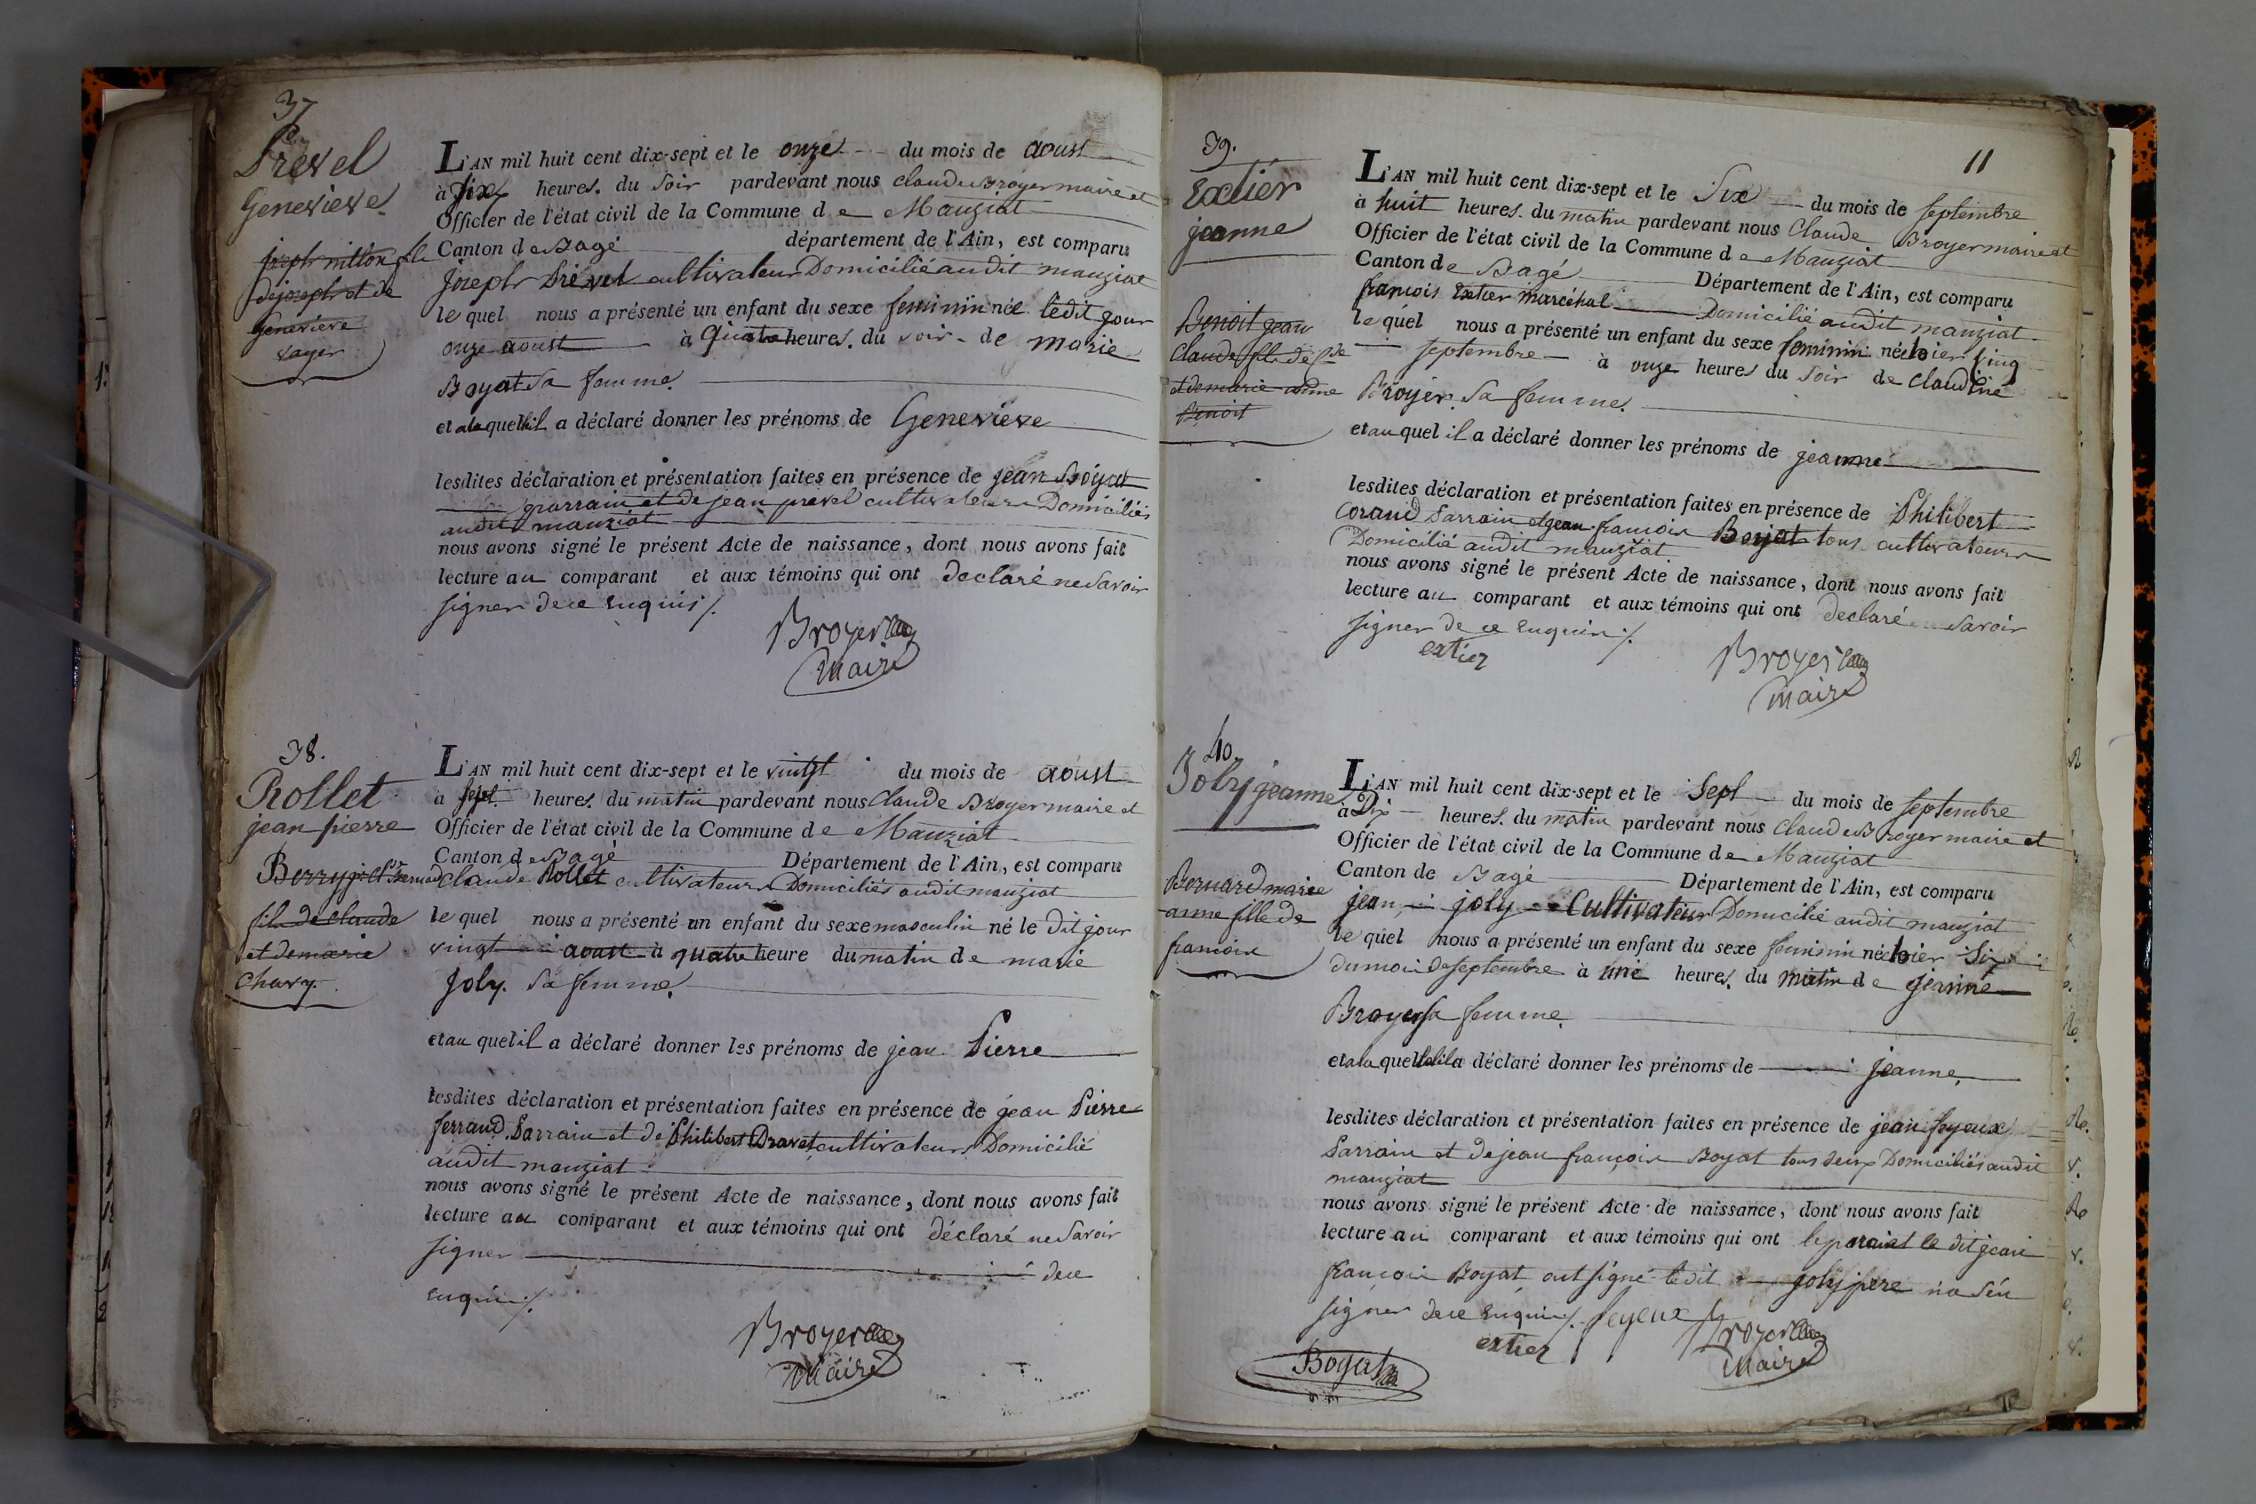 37
Prevel
Genevieve
joseph nitton fils
de joseph et de
Genevieve
sayer
L'AN mil huit cent dix-sept et le onze du mois de aoust
à six heures. du soir pardevant nous claude Broyer maire et
Officier de l'état civil de la Commune de Mauziat
Canton de Bagé département de l'Ain, est comparu
joseph Prével cultivateur Domicilié audit mauziat
le quel nous a présenté un enfant du sexe feminin née ledit jour
onze aoust à Quatre heures. du soir de marie
Boyat sa femme.
et a laquelle il a déclaré donner les prénoms de Genevieve
lesdites déclaration et présentation faites en présence de jean Boyat
parrain et de jean prevel cultivateurs Domiciliés
audit mauziat
nous avons signé le présent Acte de naissance, dont nous avons fait
lecture au comparant et aux témoins qui ont declaré ne savoir
signer de ce enquis /.
Broyer
Maire
38.
Rollet
jean pierre
Berry
fils de claude
et de marie
Chavy.
L'AN mil huit cent dix-sept et le vingt du mois de aoust
à sept heures. du matin pardevant nous Claude Broyer maire et
Officier de l'état civil de la Commune de Mauziat
Canton de Bagé Département de l'Ain, est comparu
Claude Rollet cultivateur Domiciliés audit mauziat
le quel nous a présenté un enfant du sexe masculin né le dit jour
vingt aoust à quatre heure du matin de marie
Joly. sa femme.
et au quel il a déclaré donner les prénoms de jean Pierre
lesdites déclaration et présentation faites en présence de jean Pierre
ferrand. Parrain et de Philibert Dravet cultivateurs Domicilié
audit mauziat
nous avons signé le présent Acte de naissance, dont nous avons fait
lecture au comparant et aux témoins qui ont déclaré ne savoir
signer de ce
enquis /.
Broyer
Maire
11
39.
Extier
jeanne
Benoit jean
Claude fils de Cde
et de marie anne
Benoit
L'AN mil huit cent dix-sept et le Six du mois de septembre
à huit heures. du matin pardevant nous Claude Broyer maire et
Officier de l'état civil de la Commune de Mauziat
Canton de Bagé Département de l'Ain, est comparu
francois Extier maréchal Domicilié audit mauziat
le quel nous a présenté un enfant du sexe feminin né hier cinq
septembre à onze heures du soir de claudine
Broyer. sa femme.
et au quel il a déclaré donner les prénoms de jeanne
lesdites déclaration et présentation faites en présence de Philibert
Corand Parrain et jean francois Boyat tous cultivateurs
Domicilié audit mauziat
nous avons signé le présent Acte de naissance, dont nous avons fait
lecture au comparant et aux témoins qui ont declaré savoir
signer de ce enquis /.
extier
Broyer
Maire
40.
Joly jeanne
Bernard marie
anne fille de
francois
L'AN mil huit cent dix-sept et le Sept du mois de septembre
à Dix heures. du matin pardevant nous Claude Broyer maire et
Officier de l'état civil de la Commune de Mauziat
Canton de Bagé Département de l'Ain, est comparu
jean joly Cultivateur Domicilié audit mauziat
le quel nous a présenté un enfant du sexe feminin né hier Six
du moi de septembre à une heures. du matin de jeanne
Broyer sa femme.
et a la quelle il a déclaré donner les prénoms de jeanne.
lesdites déclaration et présentation faites en présence de jean feyeux
Parrain et de jean françois Boyat tous deux Domiciliés audit
mauziat
nous avons signé le présent Acte de naissance, dont nous avons fait
lecture au comparant et aux témoins qui ont le parain et le dit jean
françois Boyat ont signé ledit joly pere n'a seu
signer de ce enquis /. feyeux Broyer
extier Maire
Boyat